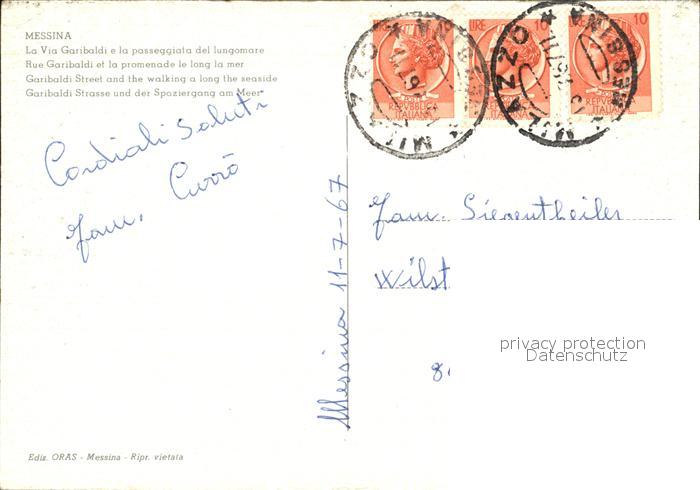 MESSINA
La Via Garibaldi e la passeggiata del lungomare
Rue Garibaldi et la promenade le long la mer
Garibaldi Street and the walking a long the seaside
Garibaldi Strasse und der Spaziergang am Meer
Cordiali Saluti
Fam. Currò
Messina 11-7-67
LIRE 10
10
10
REPVBBLICA
ITALIANA
REPVBBLICA
ITALIANA
REPVBBLICA
ITALIANA
MILAZZO
MESSINA
MILAZZO
MESSINA
Fam. Sierentheiler
Wilst
privacy protection
Datenschutz
8.
Ediz. ORAS - Messina - Ripr. vietata